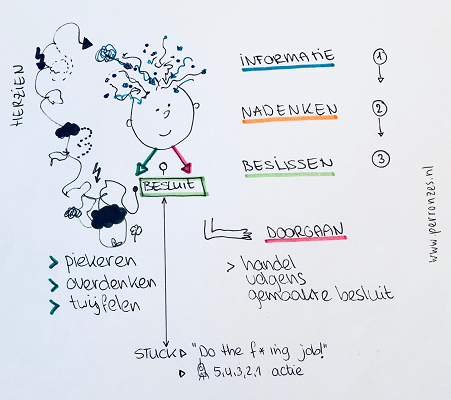 HERZIEN
INFORMATIE
1
NADENKEN
2
BESLISSEN
3
BESLUIT
DOORGAAN
> piekeren
> overdenken
> twijfelen
> handel
volgens
gemaakte besluit
STUCK ▷ "Do the f*ing job!"
▷ 5,4,3,2,1 actie
www.perronzes.nl